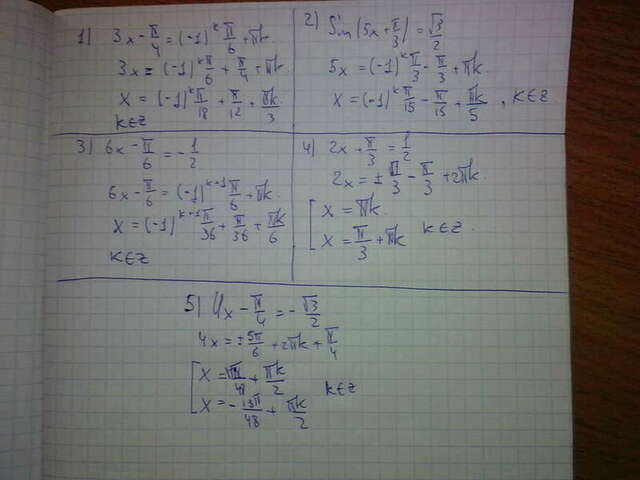 1) 3x - π/4 = (-1)^k π/6 + πk
3x = (-1)^k π/6 + π/4 + πk
x = (-1)^k π/18 + π/12 + πk/3
k∈Z
2) Sin(5x + π/3) = √3/2
5x = (-1)^k π/3 - π/3 + πk
x = (-1)^k π/15 - π/15 + πk/5, k∈Z
3) 6x - π/6 = -1/2
6x - π/6 = (-1)^k+1 π/6 + πk
x = (-1)^k+1 π/36 + π/36 + πk/6
k∈Z
4) 2x + π/3 = 1/2
2x = ± π/3 - π/3 + 2πk
[ x = πk
x = π/3 + πk k∈Z
5) 4x - π/4 = -√3/2
4x = ± 5π/6 + 2πk + π/4
x = /48 + πk/2 k∈Z
x = -13π/48 + πk/2